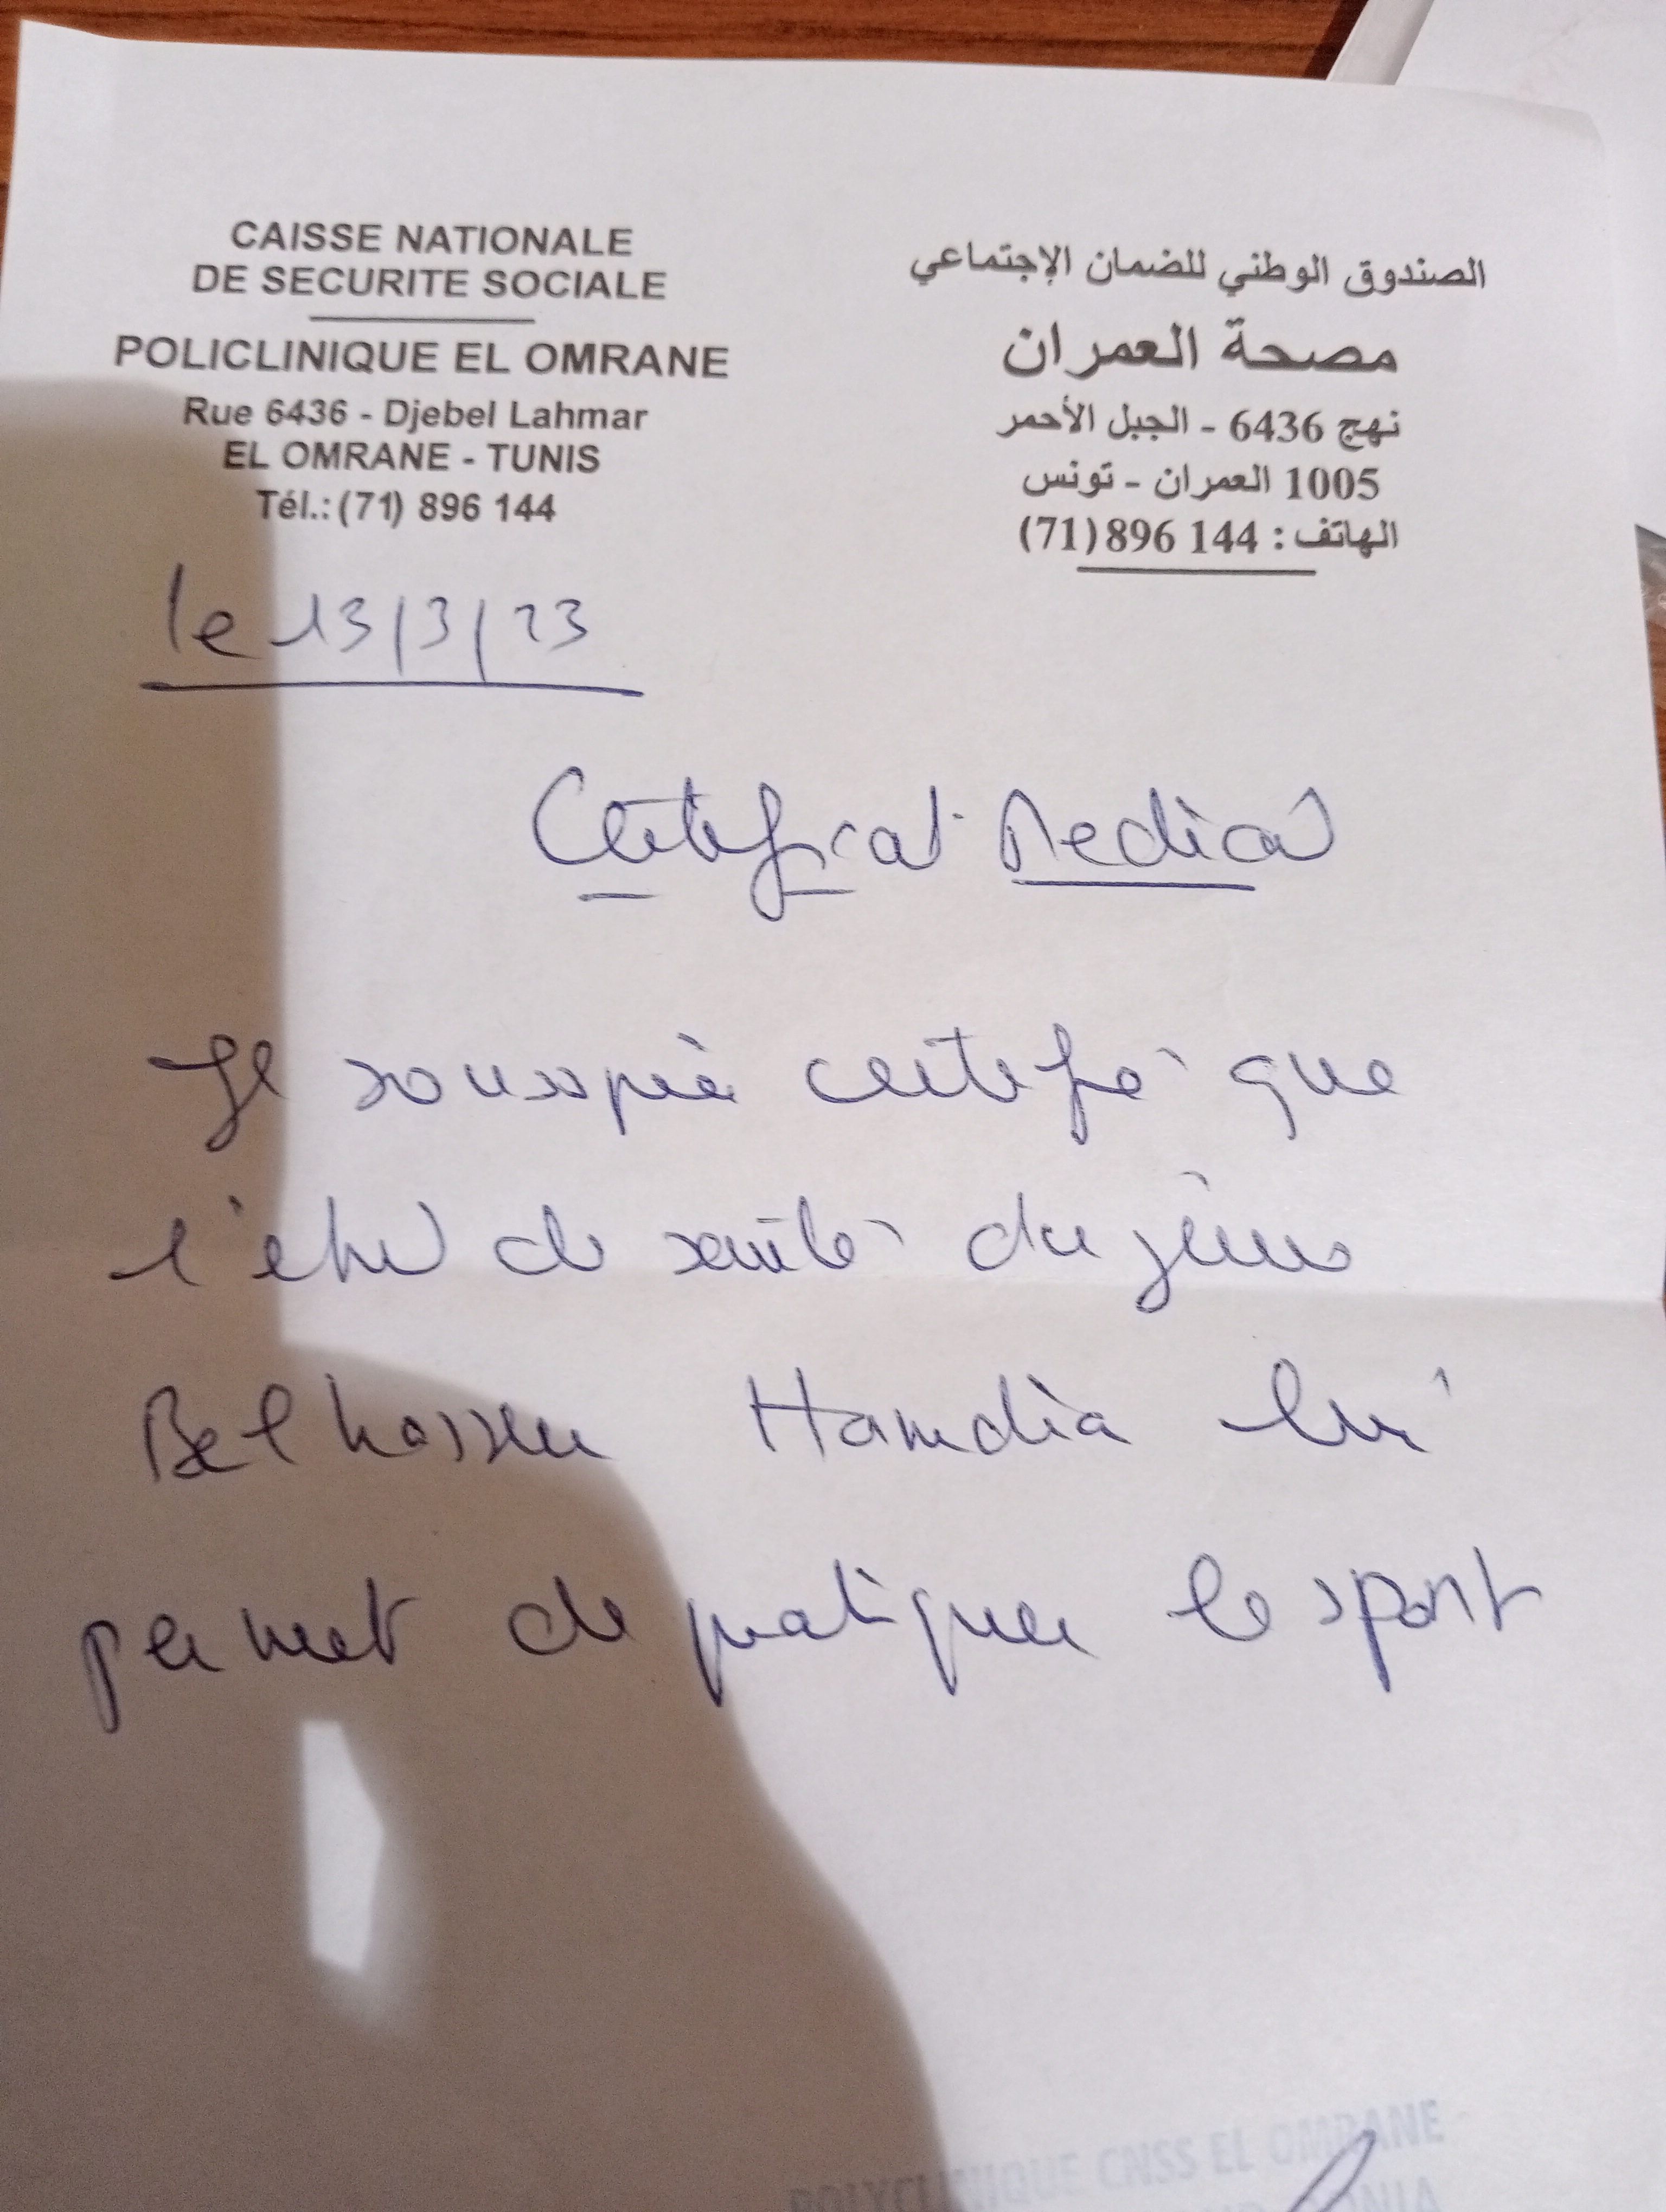 CAISSE NATIONALE
DE SECURITE SOCIALE
POLICLINIQUE EL OMRANE
Rue 6436 - Djebel Lahmar
EL OMRANE - TUNIS
Tél.: (71) 896 144
الصندوق الوطني للضمان الإجتماعي
مصحة العمران
نهج 6436 - الجبل الأحمر
1005 العمران - تونس
الهاتف : 144 896(71)
le 13/3/23
Certificat Medical
Je soussigné certifie que
l'état de santé du jeune
Belhassen Hamdia lui
permet de pratiquer le sport
POLYCLINIQUE CNSS EL OMRANE